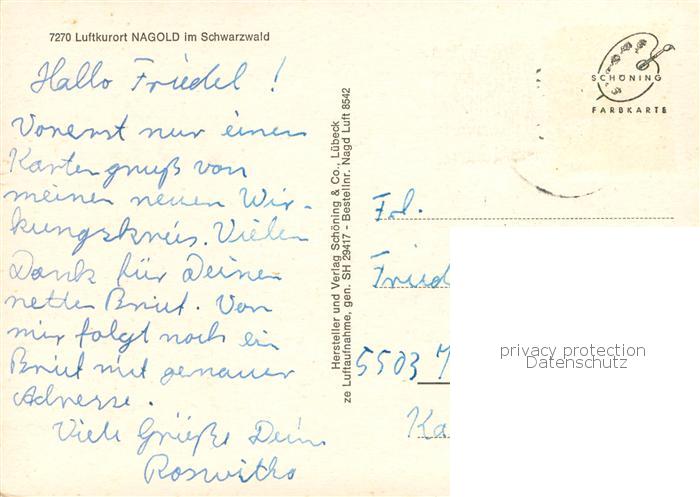 7270 Luftkurort NAGOLD im Schwarzwald
Hallo Friedel !
Vorerst nur einen
Kartengruß von
meinen neuen Wir-
kungskreis. Vielen
Dank für Deinen
netten Brief. Von
mir folgt noch ein
Brief mit genauer
Adresse.
Viele Grüße Deine
Roswitha
Hersteller und Verlag Schöning & Co., Lübeck
ze Luftaufnahme, gen. SH 29417 - Bestellnr. Nagd Luft 8542
SCHÖNING
FARBKARTE
Frl.
Fried
5503
Ka
privacy protection
Datenschutz